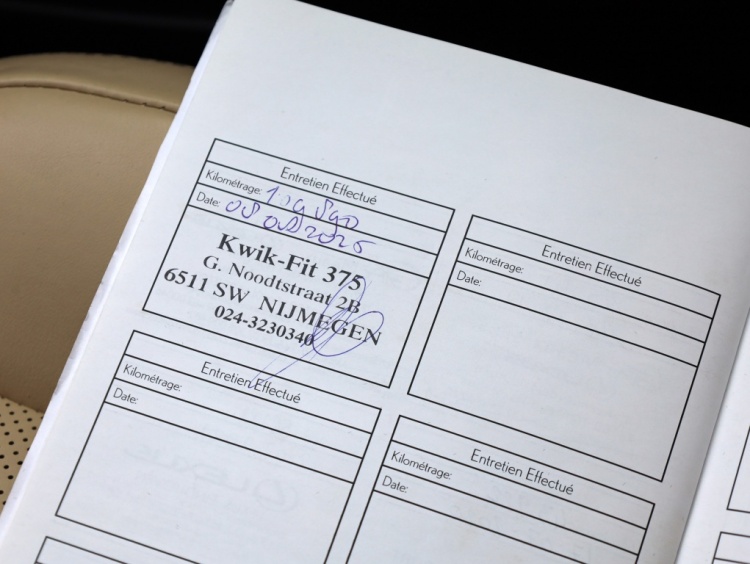 Entretien Effectué
Kilométrage: 109 890
Date: 2025
Kwik-Fit 375
G. Noodtstraat 2B
6511 SW NIJMEGEN
024-3230340
Entretien Effectué
Kilométrage:
Date:
Entretien Effectué
Kilométrage:
Date:
Entretien Effectué
Kilométrage:
Date: